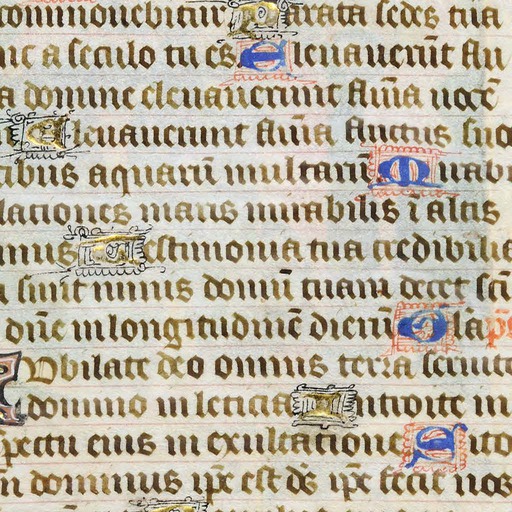 commouebitur Parata sedes tua
nc a seculo tu es Eleuauerūt flu
a domine eleuauerunt flūīa uocē
Eleuauerunt flūīa fluctus suo
cibus aquarū multarū Mirabi
lationes maris mirabilis ī altis
inus Testimonia tua credibilia
sunt nimis domū tuam decet scī
dn̄e in longitudinē dierū ps̄
Jubilate deo omnis terra seruite
domino in leticia Introite in
spectu eius in exultatione Scito
dominus ipē est ds̄ ipē fecit nos